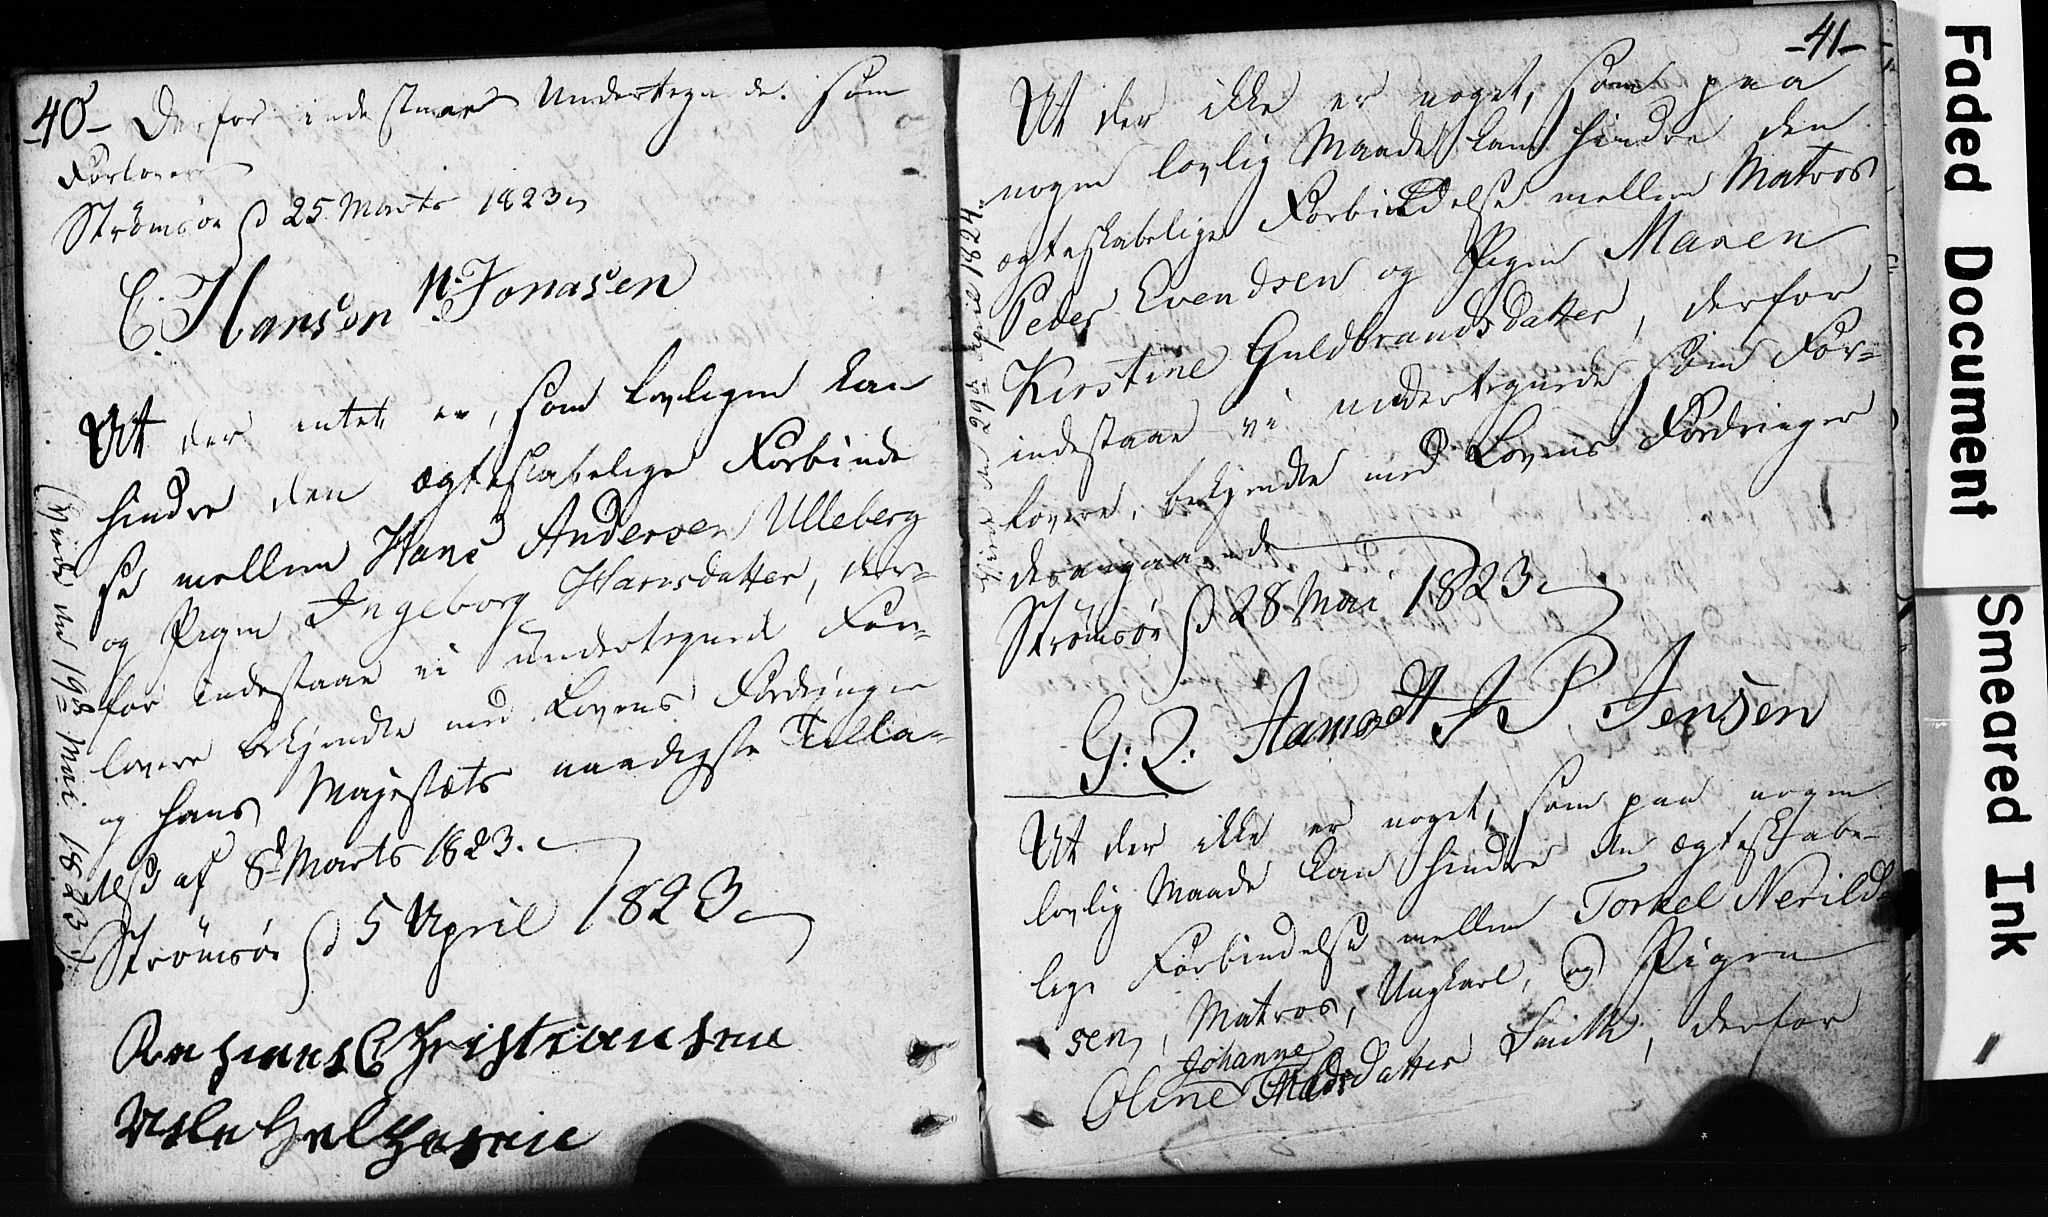 -40- Derfor indestaaer Undertegnede som
Forlovere
Strømsøe d 25 Marts 1823
C. Hansen N. Jonasen
At der intet er, som lovligen kan
hindre den ægteskabelige Forbindel
se mellem Hans Andersen Ulleberg
og Pigen Ingeborg Hansdatter, der-
for indestaae vi undertegnede For-
lovere bekjendte med Lovens Fordringer
og Hans Majestæts naadigste Tilla-
telse af 8d Marts 1823.
Strømsøe d 5 April 1823
Christiansen
(Viede den 19de Mai 1823)
-41-
At der ikke er noget, som paa
nogen lovlig Maade kan hindre den
ægteskabelige Forbindelse mellem Matros
Peder Evendsen og Pigen Maren
Kirstine Guldbrandsdatter, derfor
indestaae vi undertegnede som For-
lovere, bekjendte med Lovens Fordringer
desangaaende
Strømsøe d 28 Mai 1823
G: Q: Aamodt A P Jensen
Viede den 29de April 1824.
At der ikke er noget, som paa nogen
lovlig Maade kan hindre den ægteskabe-
lige Forbindelse mellem Torkel Nerild-
sen, Matros, Ungkarl, og Pigen
Johanne
Oline Madsdatter Smith, derfor
Faded Document
Smeared Ink